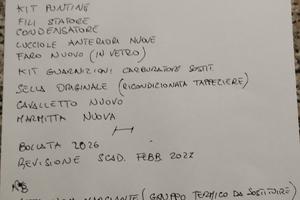 KIT PUNTINE
FILI STATORE
CONDENSATORE
LUCCIOLE ANTERIORI NUOVE
FARO NUOVO (IN VETRO)
KIT GUARNIZIONI CARBURATORE SOSTIT.
SELLA ORIGINALE (RICONDIZIONATA TAPPEZIERE)
CAVALLETTO NUOVO
MARMITTA NUOVA
BOLLATA 2026
REVISIONE SCAD. FEBB. 2022
NON MARCIANTE (GRUPPO TERMICO DA SOSTITUIRE)